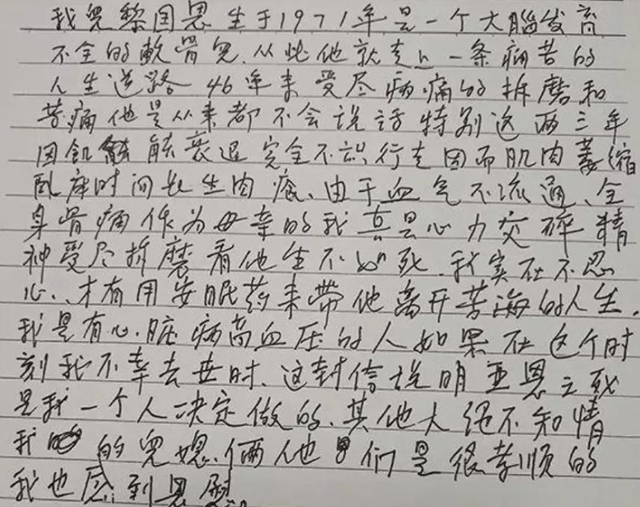 我兒黎因恩生于1971年是一个大腦发育
不全的軟骨兒.从此他就走上一条痛苦的
人生道路 46年来受尽病痛的折磨和
苦痛他是从来都不会说话特别这两三年
因飢能衰退完全不识行走因而肌肉萎缩
臥床时间长生肉瘡、由于血气不流通、全
身骨痛作为母亲的我真是心力交碎精
神受尽折磨看他生不如死.我实在不忍
心、才有用安眠药来帶他离开苦海的人生.
我是有心脏病高血压的人如果在这个时
刻我不幸去世时、这封信说明亚恩之死
是我一个人决定做的.其他人绝不知情
我的兒媳俩他们是很孝順的
我也感到恩慰